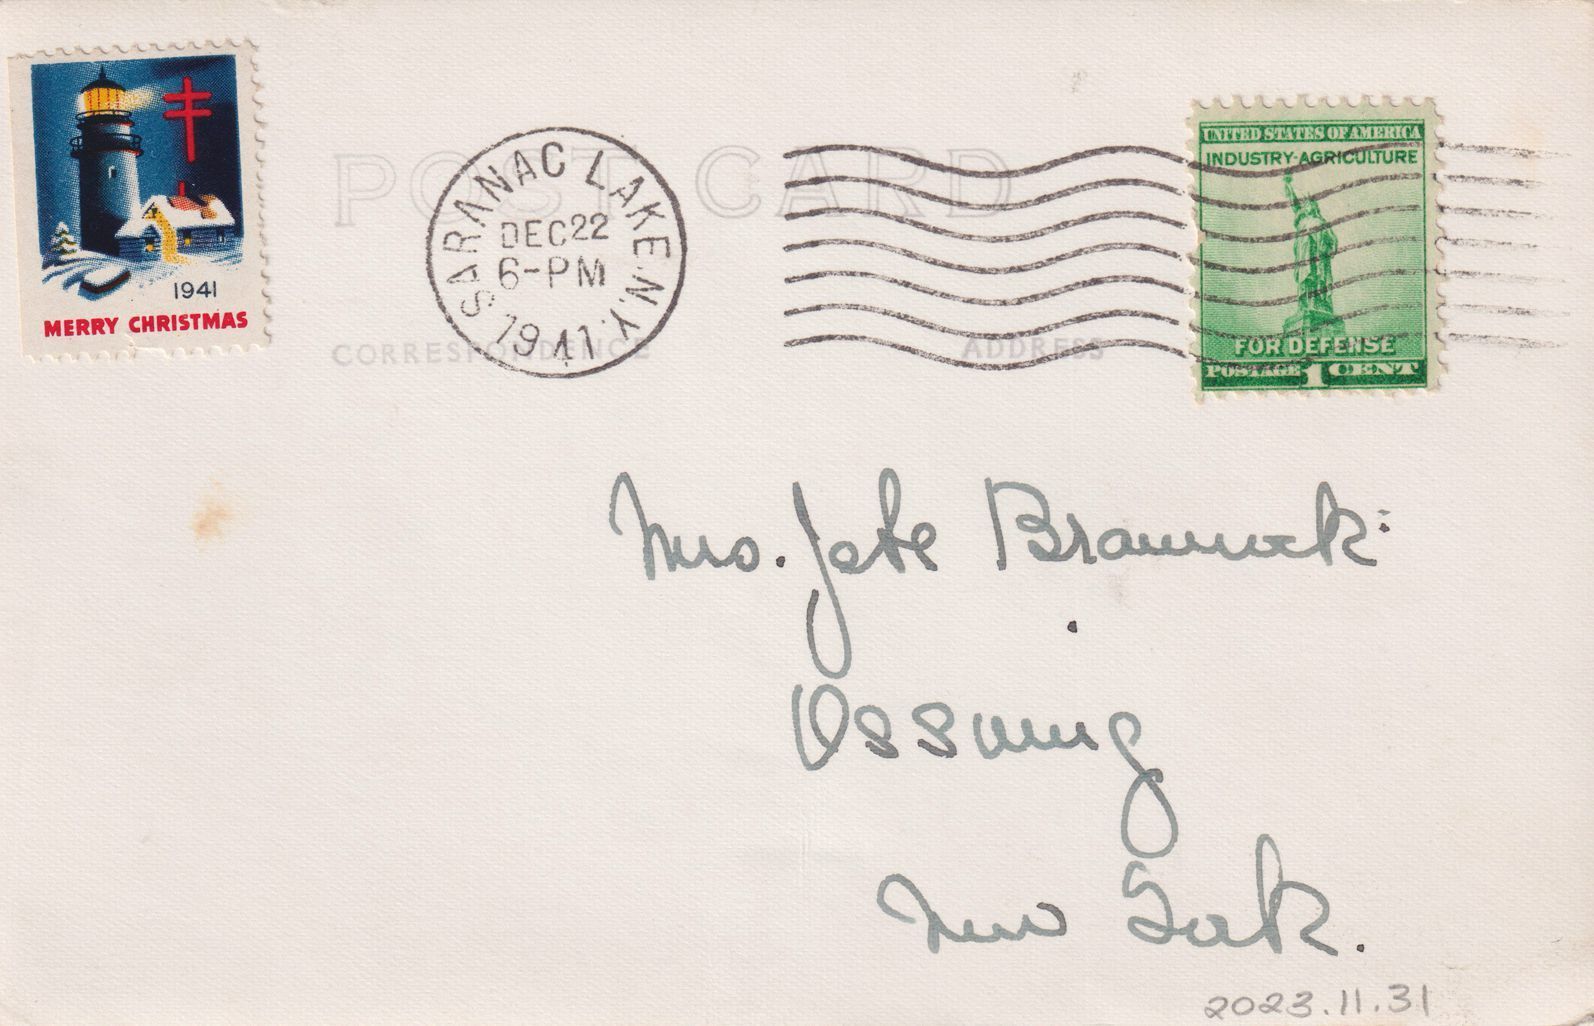 1941
MERRY CHRISTMAS
POST CARD
SARANAC LAKE, N.Y.
DEC 22
6-PM
1941
UNITED STATES OF AMERICA
INDUSTRY-AGRICULTURE
FOR DEFENSE
POSTAGE 1 CENT
CORRESPONDENCE
ADDRESS
Mrs.
Ossining
New York.
2023.11.31